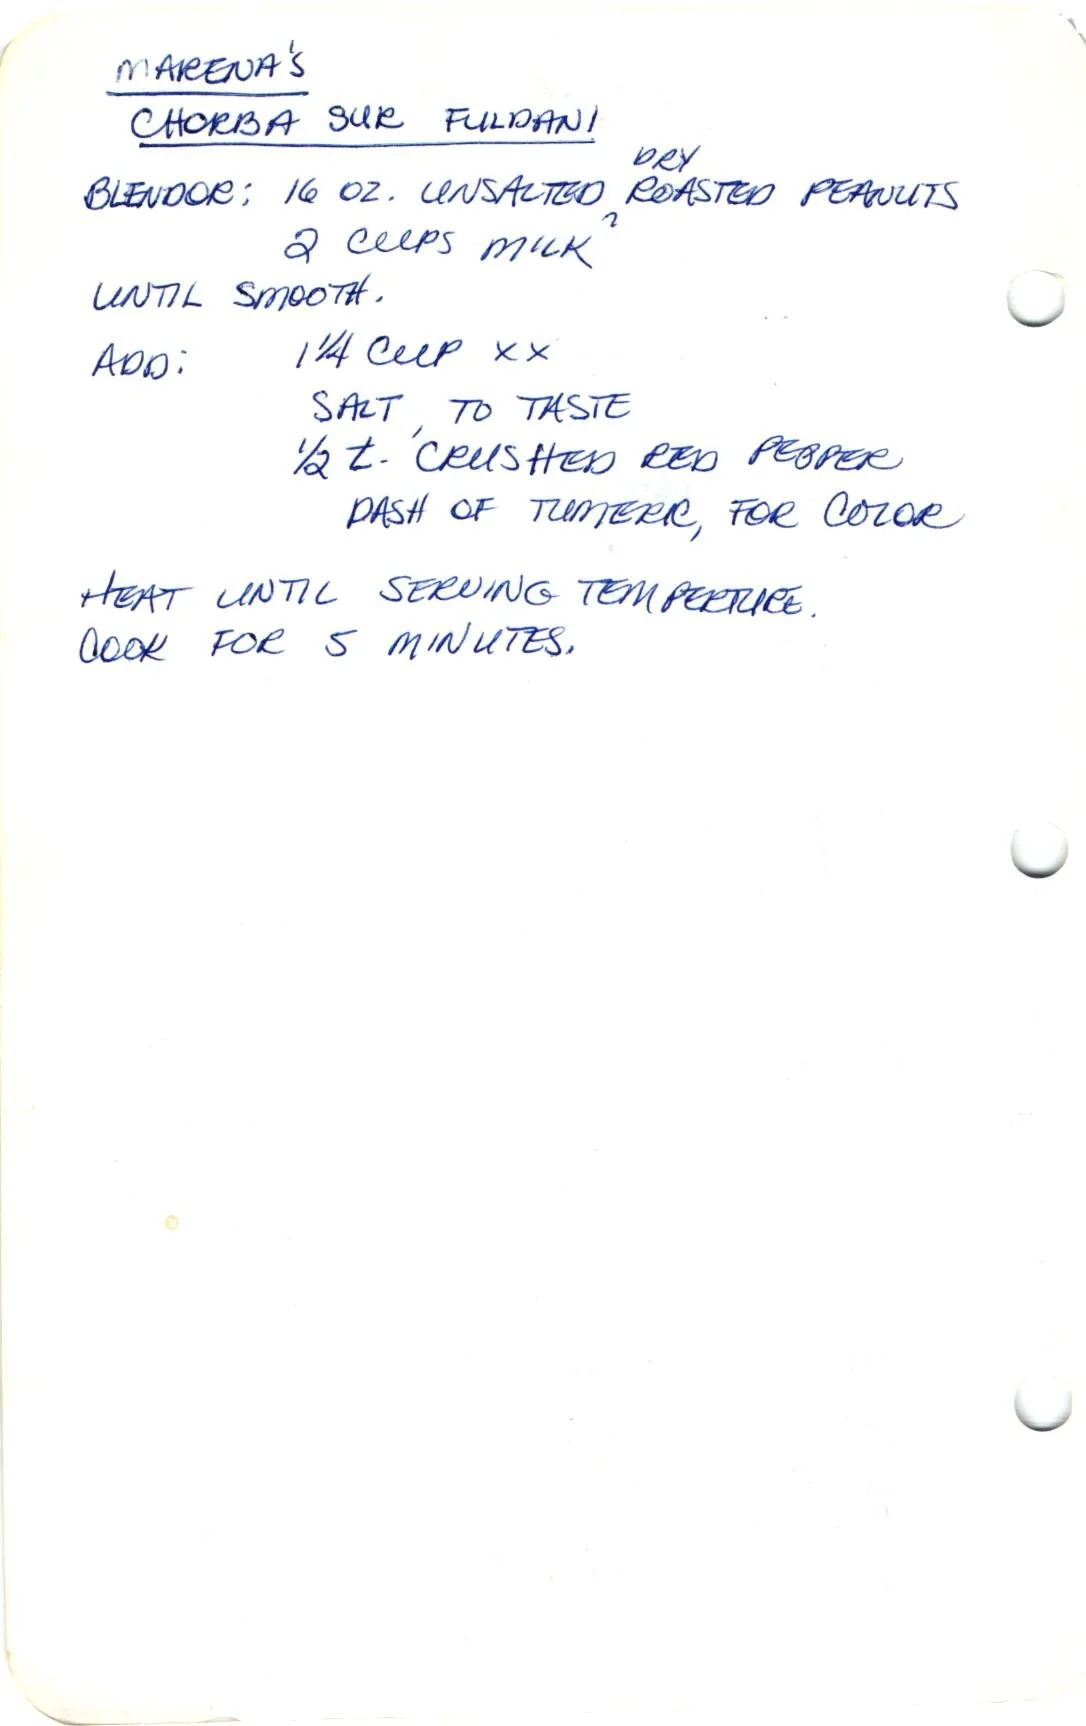 MARENA'S
CHORBA SUR FULDANI
BLENDOR: 16 OZ. UNSALTED, DRY ROASTED PEANUTS
2 CUPS MILK
UNTIL SMOOTH.
ADD: 1 1/4 CUP XX
SALT, TO TASTE
1/2 t. CRUSHED RED PEPPER
DASH OF TUMERIC, FOR COLOR
HEAT UNTIL SERVING TEMPERTURE.
COOK FOR 5 MINUTES.